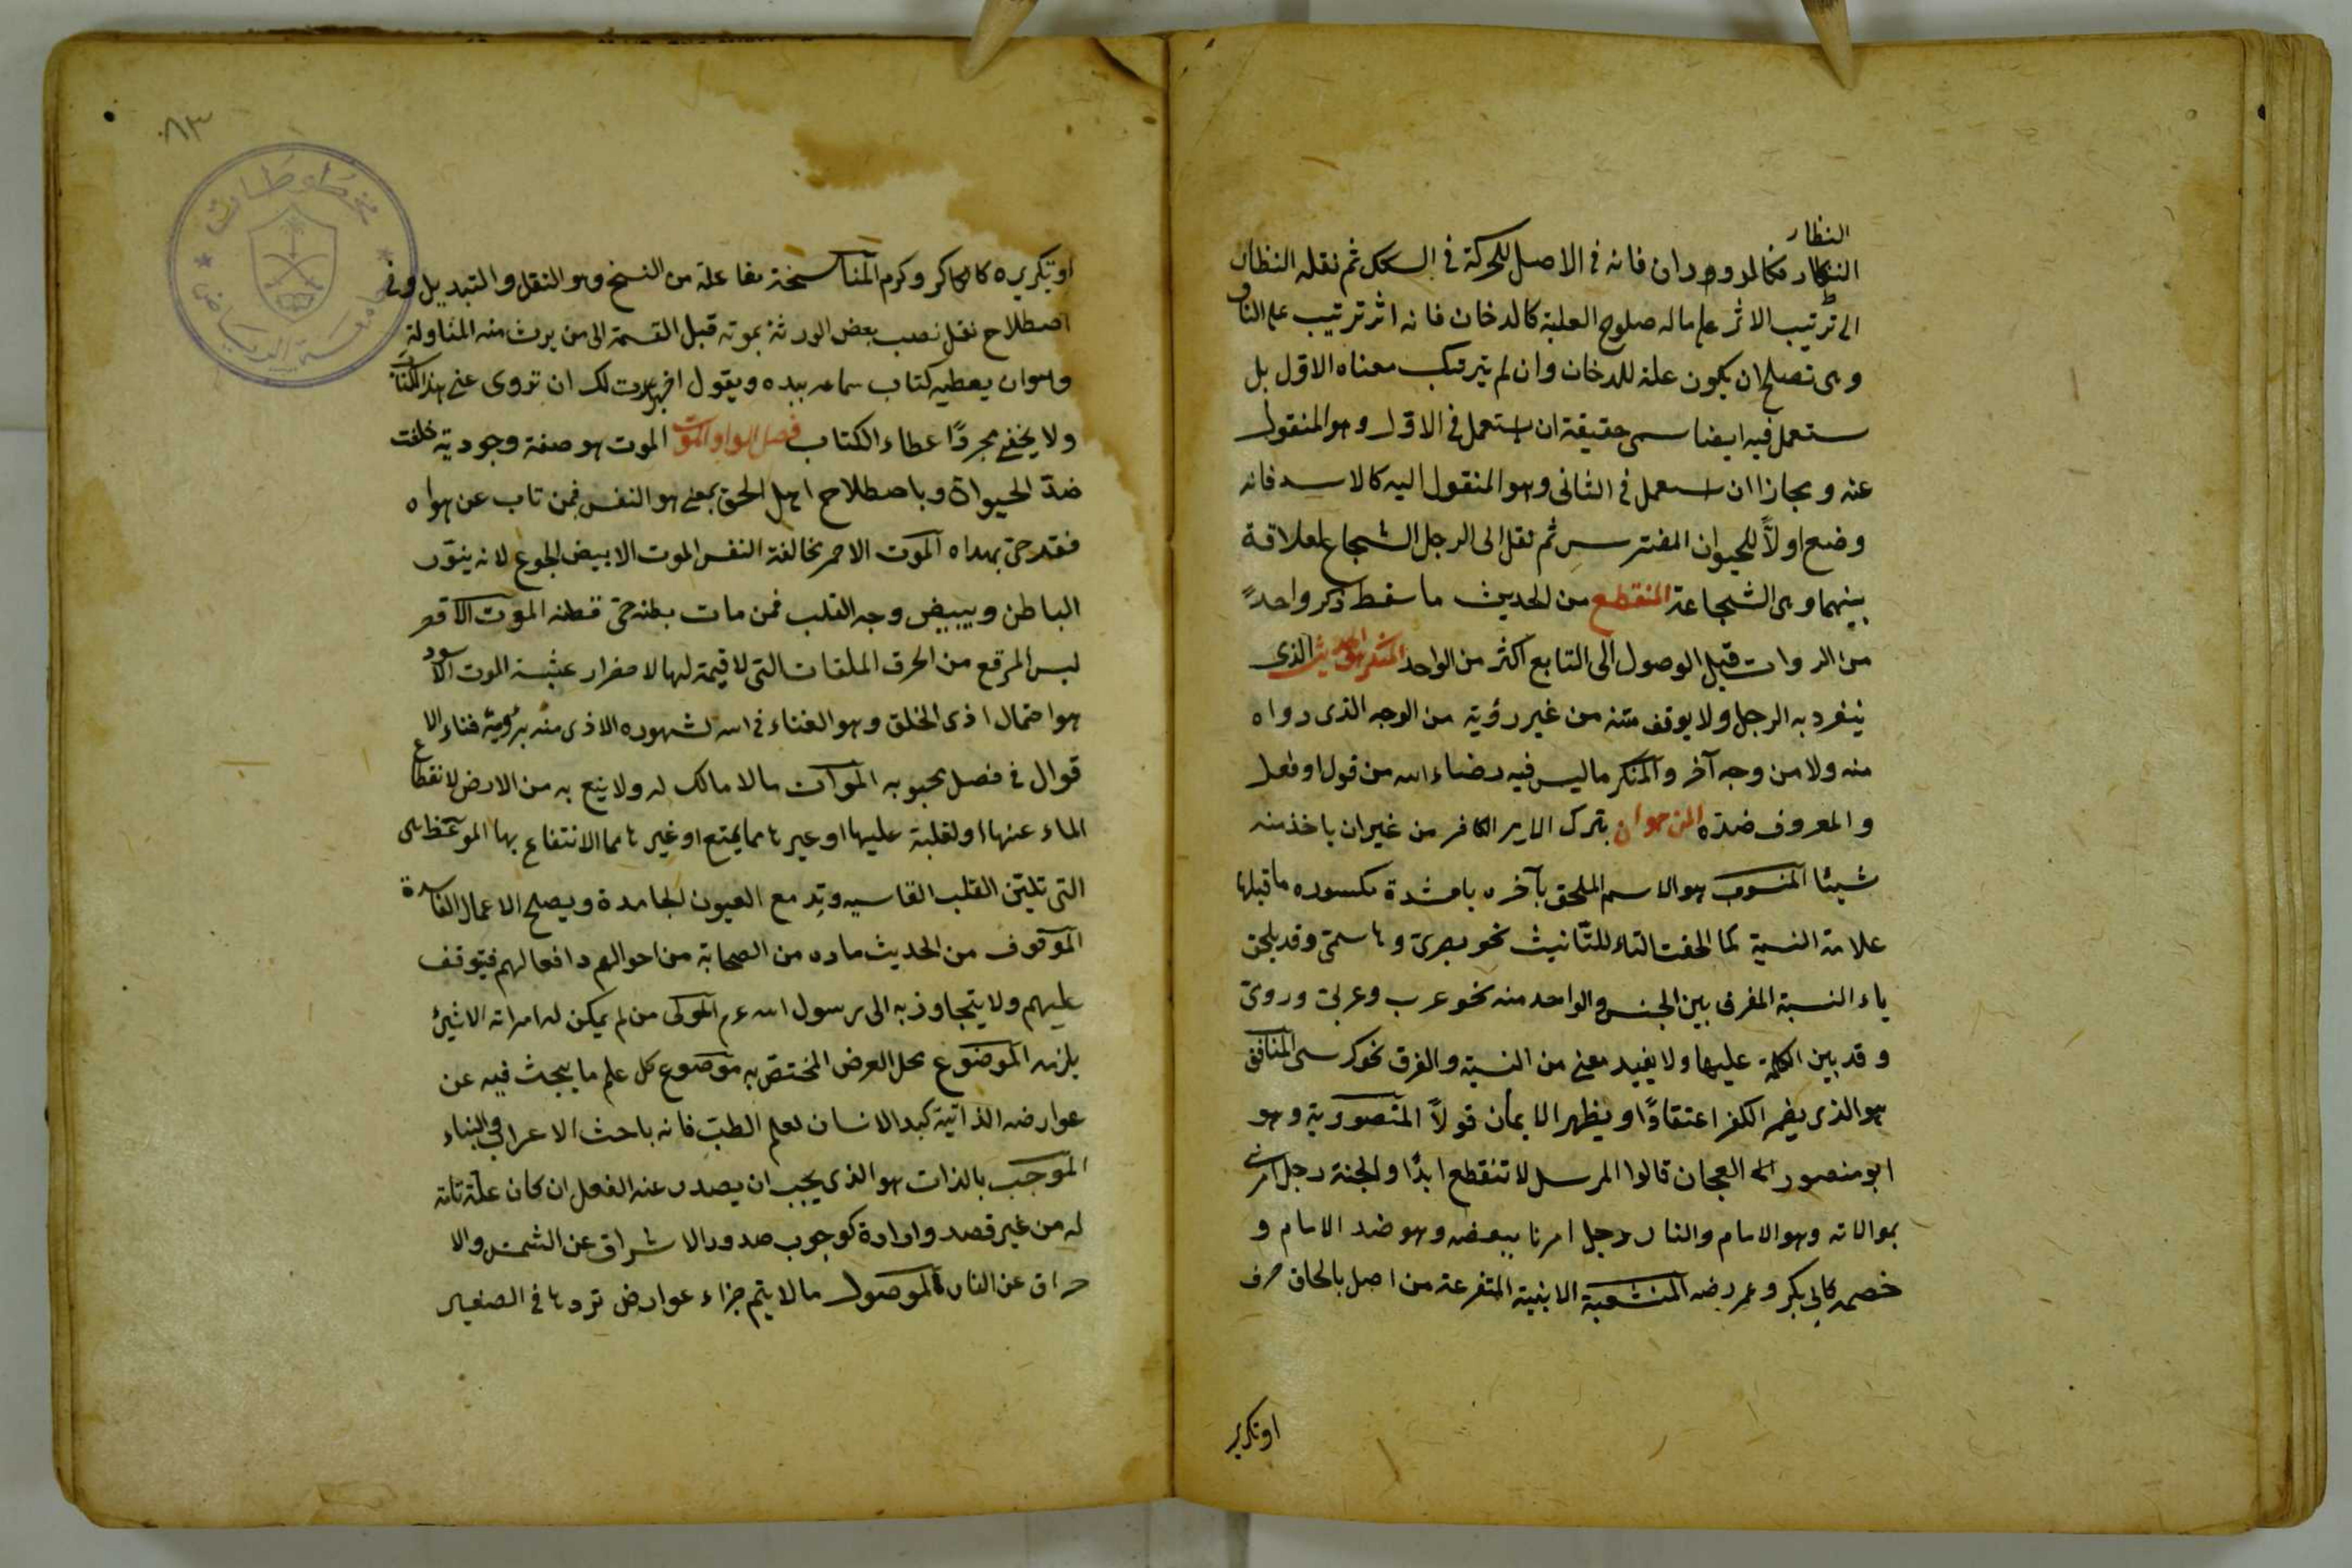 النظار
النكار فكالدوران فانه في الاصل للحركة في السكك ثم نقله النظار
الى ترتيب الاثر على ماله صلوح العلية كالدخان فانه اثر ترتيب على النار
وهي تصلح ان يكون علة للدخان وان لم يترك معناه الاول بل
يستعمل فيه ايضا سمى حقيقة ان يستعمل في الاول وهو المنقول
عنه ومجازا ان استعمل في الثاني وهو المنقول اليه كالاسد فانه
وضع اولاً للحيوان المفترس ثم نقل الى الرجل الشجاع لعلاقة
بينهما وهى الشجاعة المنقطع من الحديث ما سقط ذكر واحدً
من الروات قبل الوصول الى التابع اكثر من الواحد الحديث الذى
ينفرد به الرجل ولا يوقف متنه من غير رؤية من الوجه الذى رواه
منه ولا من وجه آخر والمنكر ما ليس فيه رضاء الله من قول او فعل
والمعروف ضدّه المن هو ان يترك الامير الكافر من غير ان ياخذ منه
شيئا المنسوب هو الاسم الملحق بآخره يا مشدة مكسوره ما قبلها
علامة النسبة كما الحقت التاء للتانيث نحو بصرىّ وهاشمىّ وقد يلحق
ياء النسبة المفرق بين الجنس والواحد منه نحو عرب وعربىّ ورومىّ
وقد بين الكلمة عليها ولا يفيد معنى من النسبة والفرق نحو كرسى المنافق
هو الذى يضمر الكفر اعتقادًا ويظهر الايمان قولاً المنصورية وهو
ابو منصور العجان قالوا المرسل لا تنقطع ابدًا والجنة رجل امرنا
بموالاته وهو الامام والنار رجل امرنا ببغضه وهو ضد الامام و
خصمه كابي بكر وعمر رضه المنشعبة الابنية المتفرعة من اصل بالحاق حرف
او تكرير
٨٣
او تكريره كاكرم وكرم المناسخة مفاعلة من النسخ وهو النقل والتبديل وفى
اصطلاح نقل نصب بعض الورثة بموته قبل القسمة الى من يرث منه المناولة
وهو ان يعطيه كتاب سماعه بيده ويقول اجزت لك ان تروى عنى هذا الكتاب
ولا يخفى مجردًا عطاء الكتاب فصل الواو الموت الموت هو صفة وجودية خلقت
ضدّ الحيواة وباصطلاح اهل الحق بمعنى هو النفس فمن تاب عن هواه
فقد حى بهداه الموت الاحمر مخالفة النفس الموت الابيض الجوع لانه ينوّر
الباطن ويبيض وجه القلب فمن مات بطنه حى فطنه الموت الاقعر
لبس المرقع من الخرق الملقات التى لا قيمة لها لاصفرار عشبه الموت الاسود
هو احتمال اذى الخلق وهو الفناء فى الله لشهوده الاذى منه برؤية فناء الا
قوال فى فصل محبوبه الموات ما لا مالك له ولا ينتفع به من الارض لانقطاع
الماء عنها او لغلبة عليها او غيرها مما يمنع او غيرها مما الانتفاع بها الموعظة هى
التى تليّن القلب القاسيه وتدمع العيون الجامدة ويصلح الاعمال الفاسدة
الموقوف من الحديث ما ره من الصحابة من احوالهم وافعالهم فيتوقف
عليهم ولا يتجاوز به الى رسول الله عم المولى من لم يمكن له امراته الا شيئ
يلزمه الموضوع محل العرض المختص به موضوع كل علم ما يبحث فيه عن
عوارضه الذاتية كبد الانسان لعلم الطب فانه باحث الاعراب والبناء
الموجب بالذات هو الذى يجب ان يصدر عنه الفعل ان كان علة تامة
له من غير قصد وارادة كوجوب صدور الاشراق عن الشمس والا
حراق عن النار الموصول ما لا يتم جزاء عوارض تردها فى الصغير